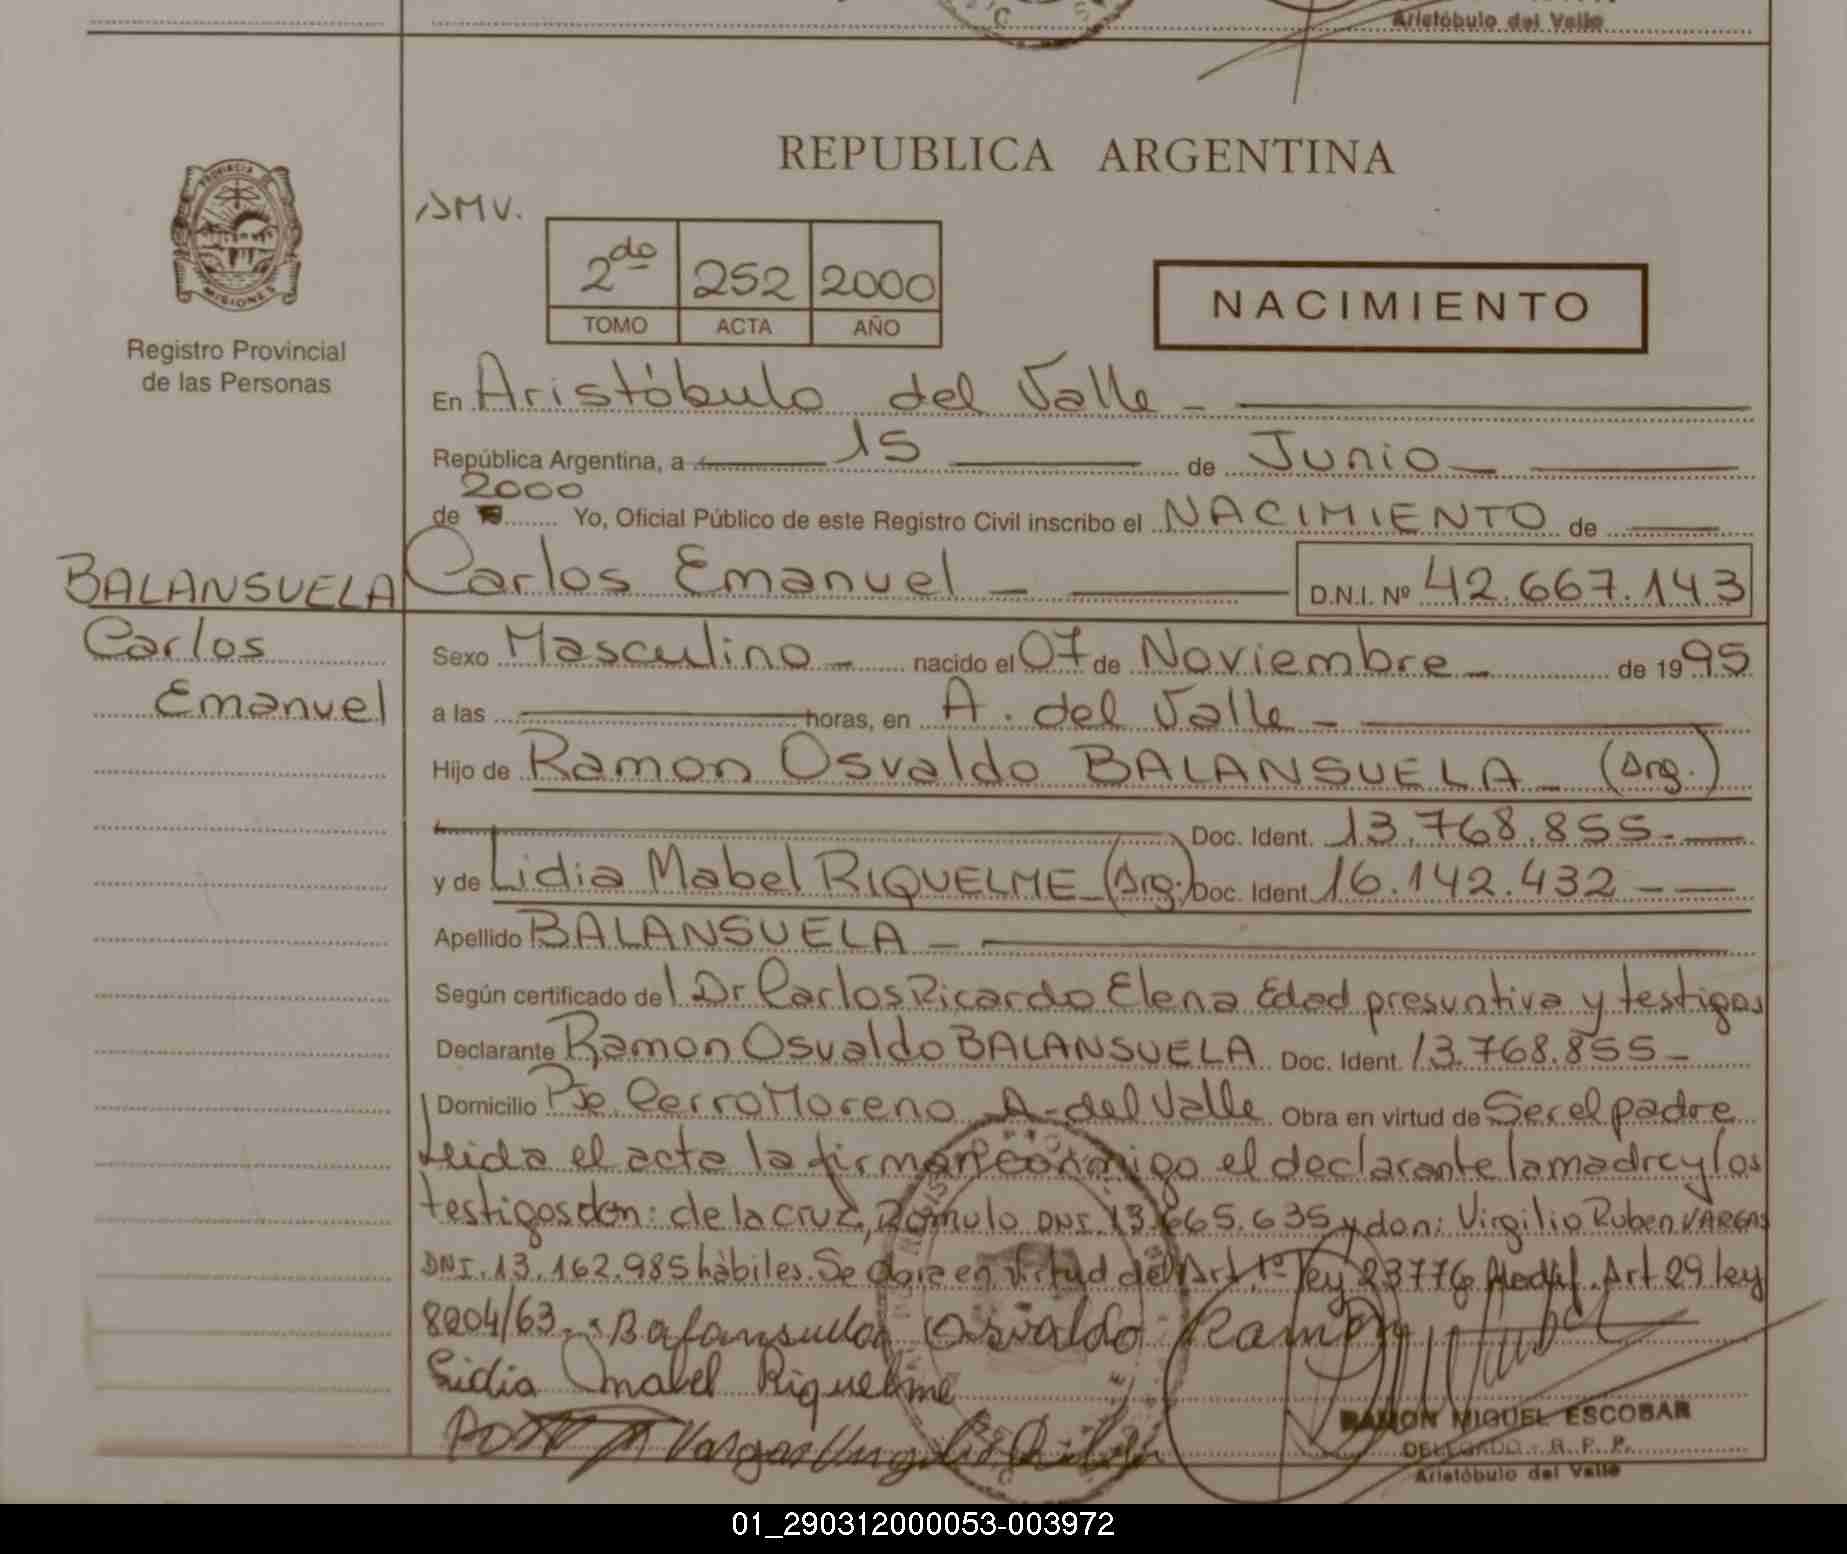 Aristóbulo del Valle
REPUBLICA ARGENTINA
PROVINCIA
MISIONES
Registro Provincial
de las Personas
SMV.
2do 252 2000
TOMO ACTA AÑO
NACIMIENTO
En Aristóbulo del Valle
República Argentina, a 15 de Junio
2000
de Yo, Oficial Público de este Registro Civil inscribo el NACIMIENTO de
BALANSUELA Carlos Emanuel D.N.I. Nº 42.667.143
Carlos
Emanuel
Sexo Masculino nacido el 07 de Noviembre de 1995
a las horas, en A. del Valle
Hijo de Ramon Osvaldo BALANSUELA (Arg.)
Doc. Ident. 13.768.855
y de Lidia Mabel RIQUELME (Arg.) Doc. Ident. 16.142.432
Apellido BALANSUELA
Según certificado del Dr Carlos Ricardo Elena Edad presuntiva y testigos
Declarante Ramon Osvaldo BALANSUELA Doc. Ident. 13.768.855
Domicilio Pje Cerro Moreno A. del Valle Obra en virtud de Ser el padre
Leida el acta la firman conmigo el declarante la madre y los
testigos don: de la cruz, Romulo DNI. 13.665.635 y don: Virgilio Ruben VARGAS
DNI. 13.162.985 hàbiles. Se obra en virtud del Art. 1º ley 23776 Modif. Art 29 ley
8204/63. Balansuela Osvaldo Ramon
Lidia Mabel Riquelme
Vargas Virgilio
RAMON MIGUEL ESCOBAR
DELEGADO - R. P. P.
Aristóbulo del Valle
01_290312000053-003972